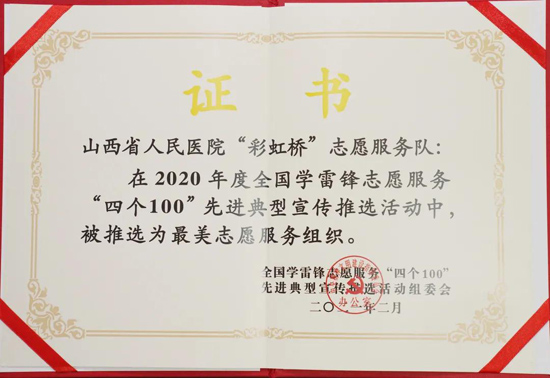 证书
山西省人民医院“彩虹桥”志愿服务队：
在2020年度全国学雷锋志愿服务
“四个100”先进典型宣传推选活动中，
被推选为最美志愿服务组织。
全国学雷锋志愿服务“四个100”
先进典型宣传推选活动组委会
办公室
二〇二一年二月